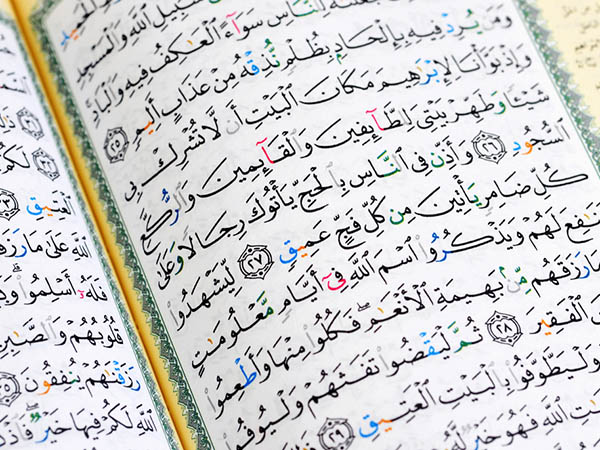 سَبِيلِ ٱللَّهِ وَٱلْمَسْجِدِ
لِلنَّاسِ سَوَآءً ٱلْعَـٰكِفُ فِيهِ وَٱلْبَادِ
وَمَن يُرِدْ فِيهِ بِإِلْحَادٍۭ بِظُلْمٍ نُّذِقْهُ مِنْ عَذَابٍ أَلِيمٍ ٢٥
وَإِذْ بَوَّأْنَا لِإِبْرَٰهِيمَ مَكَانَ ٱلْبَيْتِ أَن لَّا تُشْرِكْ بِى
شَيْـًٔا وَطَهِّرْ بَيْتِىَ لِلطَّآئِفِينَ وَٱلْقَآئِمِينَ وَٱلرُّكَّعِ
ٱلسُّجُودِ ٢٦ وَأَذِّن فِى ٱلنَّاسِ بِٱلْحَجِّ يَأْتُوكَ رِجَالًا وَعَلَىٰ
كُلِّ ضَامِرٍ يَأْتِينَ مِن كُلِّ فَجٍّ عَمِيقٍ ٢٧ لِّيَشْهَدُوا۟
لَهُمْ وَيَذْكُرُوا۟ ٱسْمَ ٱللَّهِ فِىٓ أَيَّامٍ مَّعْلُومَـٰتٍ
رَزَقَهُم مِّنۢ بَهِيمَةِ ٱلْأَنْعَـٰمِ ۖ فَكُلُوا۟ مِنْهَا وَأَطْعِمُوا۟
ٱلْفَقِيرَ ٢٨ ثُمَّ لْيَقْضُوا۟ تَفَثَهُمْ وَلْيُوفُوا۟
وَلْيَطَّوَّفُوا۟ بِٱلْبَيْتِ ٱلْعَتِيقِ ٢٩
ٱللَّهِ فَهُوَ خَيْرٌ لَّهُۥ
لَكُمْ
ٱلْعَتِيقِ ٣٣
ٱللَّهِ عَلَىٰ مَا
فَلَهُۥٓ أَسْلِمُوا۟
قُلُوبُهُمْ وَٱلصَّـٰبِرِينَ
رَزَقْنَـٰهُمْ يُنفِقُونَ ٣٥
ٱللَّهِ لَكُمْ فِيهَا خَيْرٌ ۖ